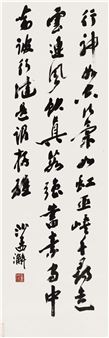 行神如空行氣如虹巫峽千尋走
雲連風飲真茹強蓄素守中
喻彼行健是謂存雄
沙孟海